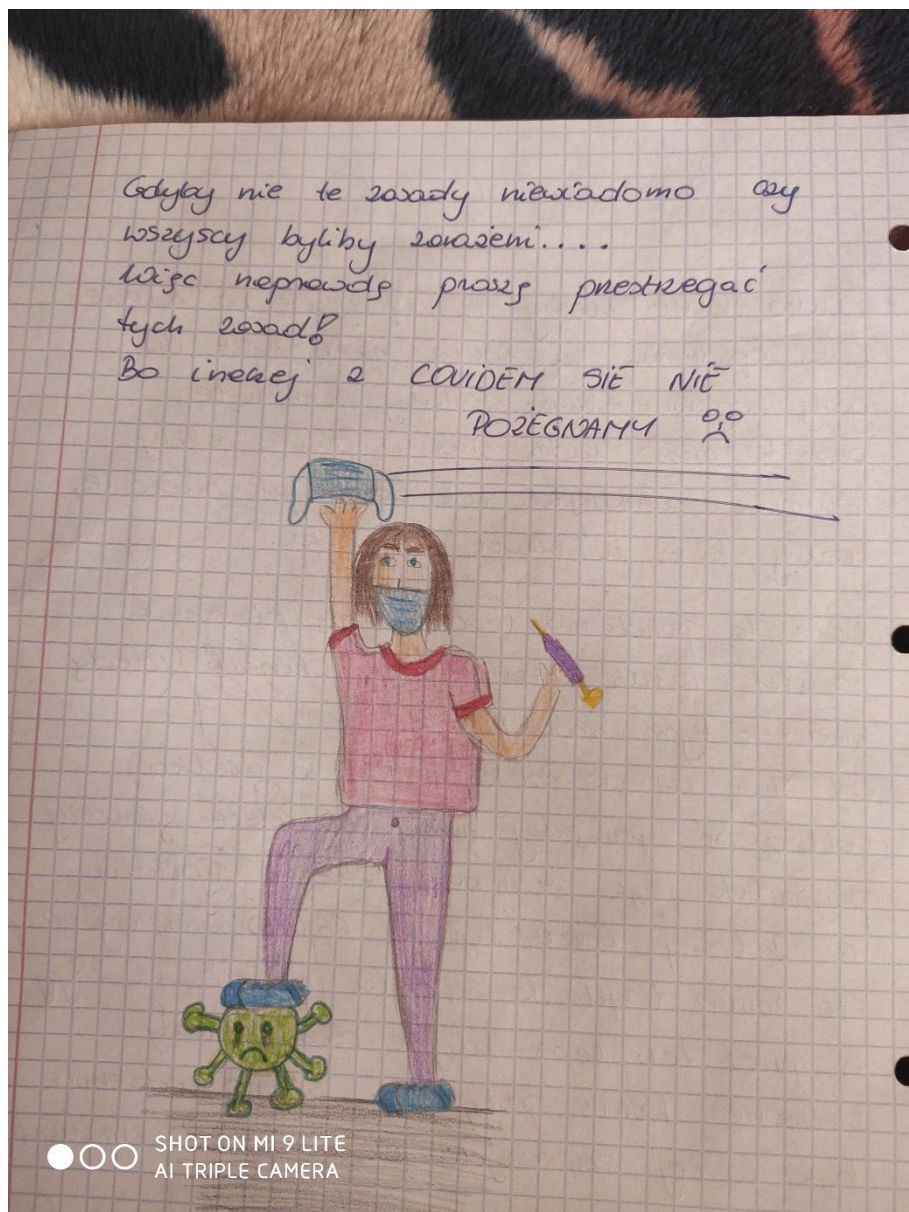 Gdyby nie te zasady niewiadomo czy
wszyscy byliby zarażeni....
Więc neprawdę proszę przestrzegać
tych zasad!
Bo inaczej z COVIDEM SIĘ NIE
POŻEGNAMY
SHOT ON MI 9 LITE
AI TRIPLE CAMERA